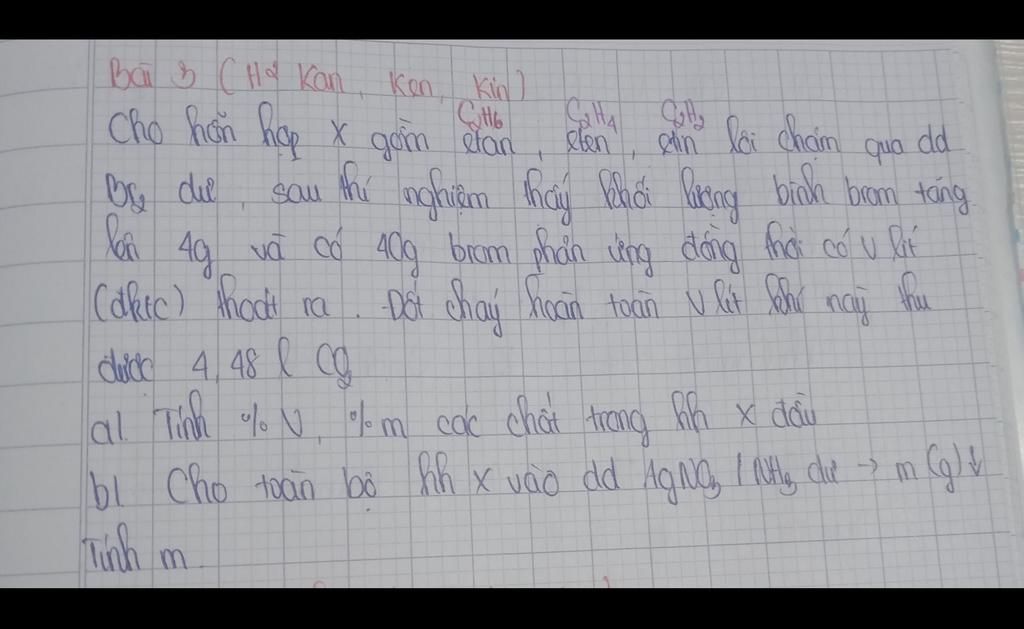 Bài 3 (Hỗ Kan, Ken, Kin)
C₂H₆ C₂H₄ C₂H₂
Cho hỗn hợp X gồm etan, eten, etin lội chậm qua dd
Br₂ dư, sau thí nghiệm thấy khối lượng bình brom tăng
lên 4g và có 40g brom phản ứng đồng thời có V lít
(đktc) thoát ra. Đốt cháy hoàn toàn V lít khí này thu
được 4,48 l CO₂
a/ Tính % V, % m các chất trong hh X đầu
b/ Cho toàn bộ hh X vào dd AgNO₃ / NH₃ dư → m (g)↓
Tính m